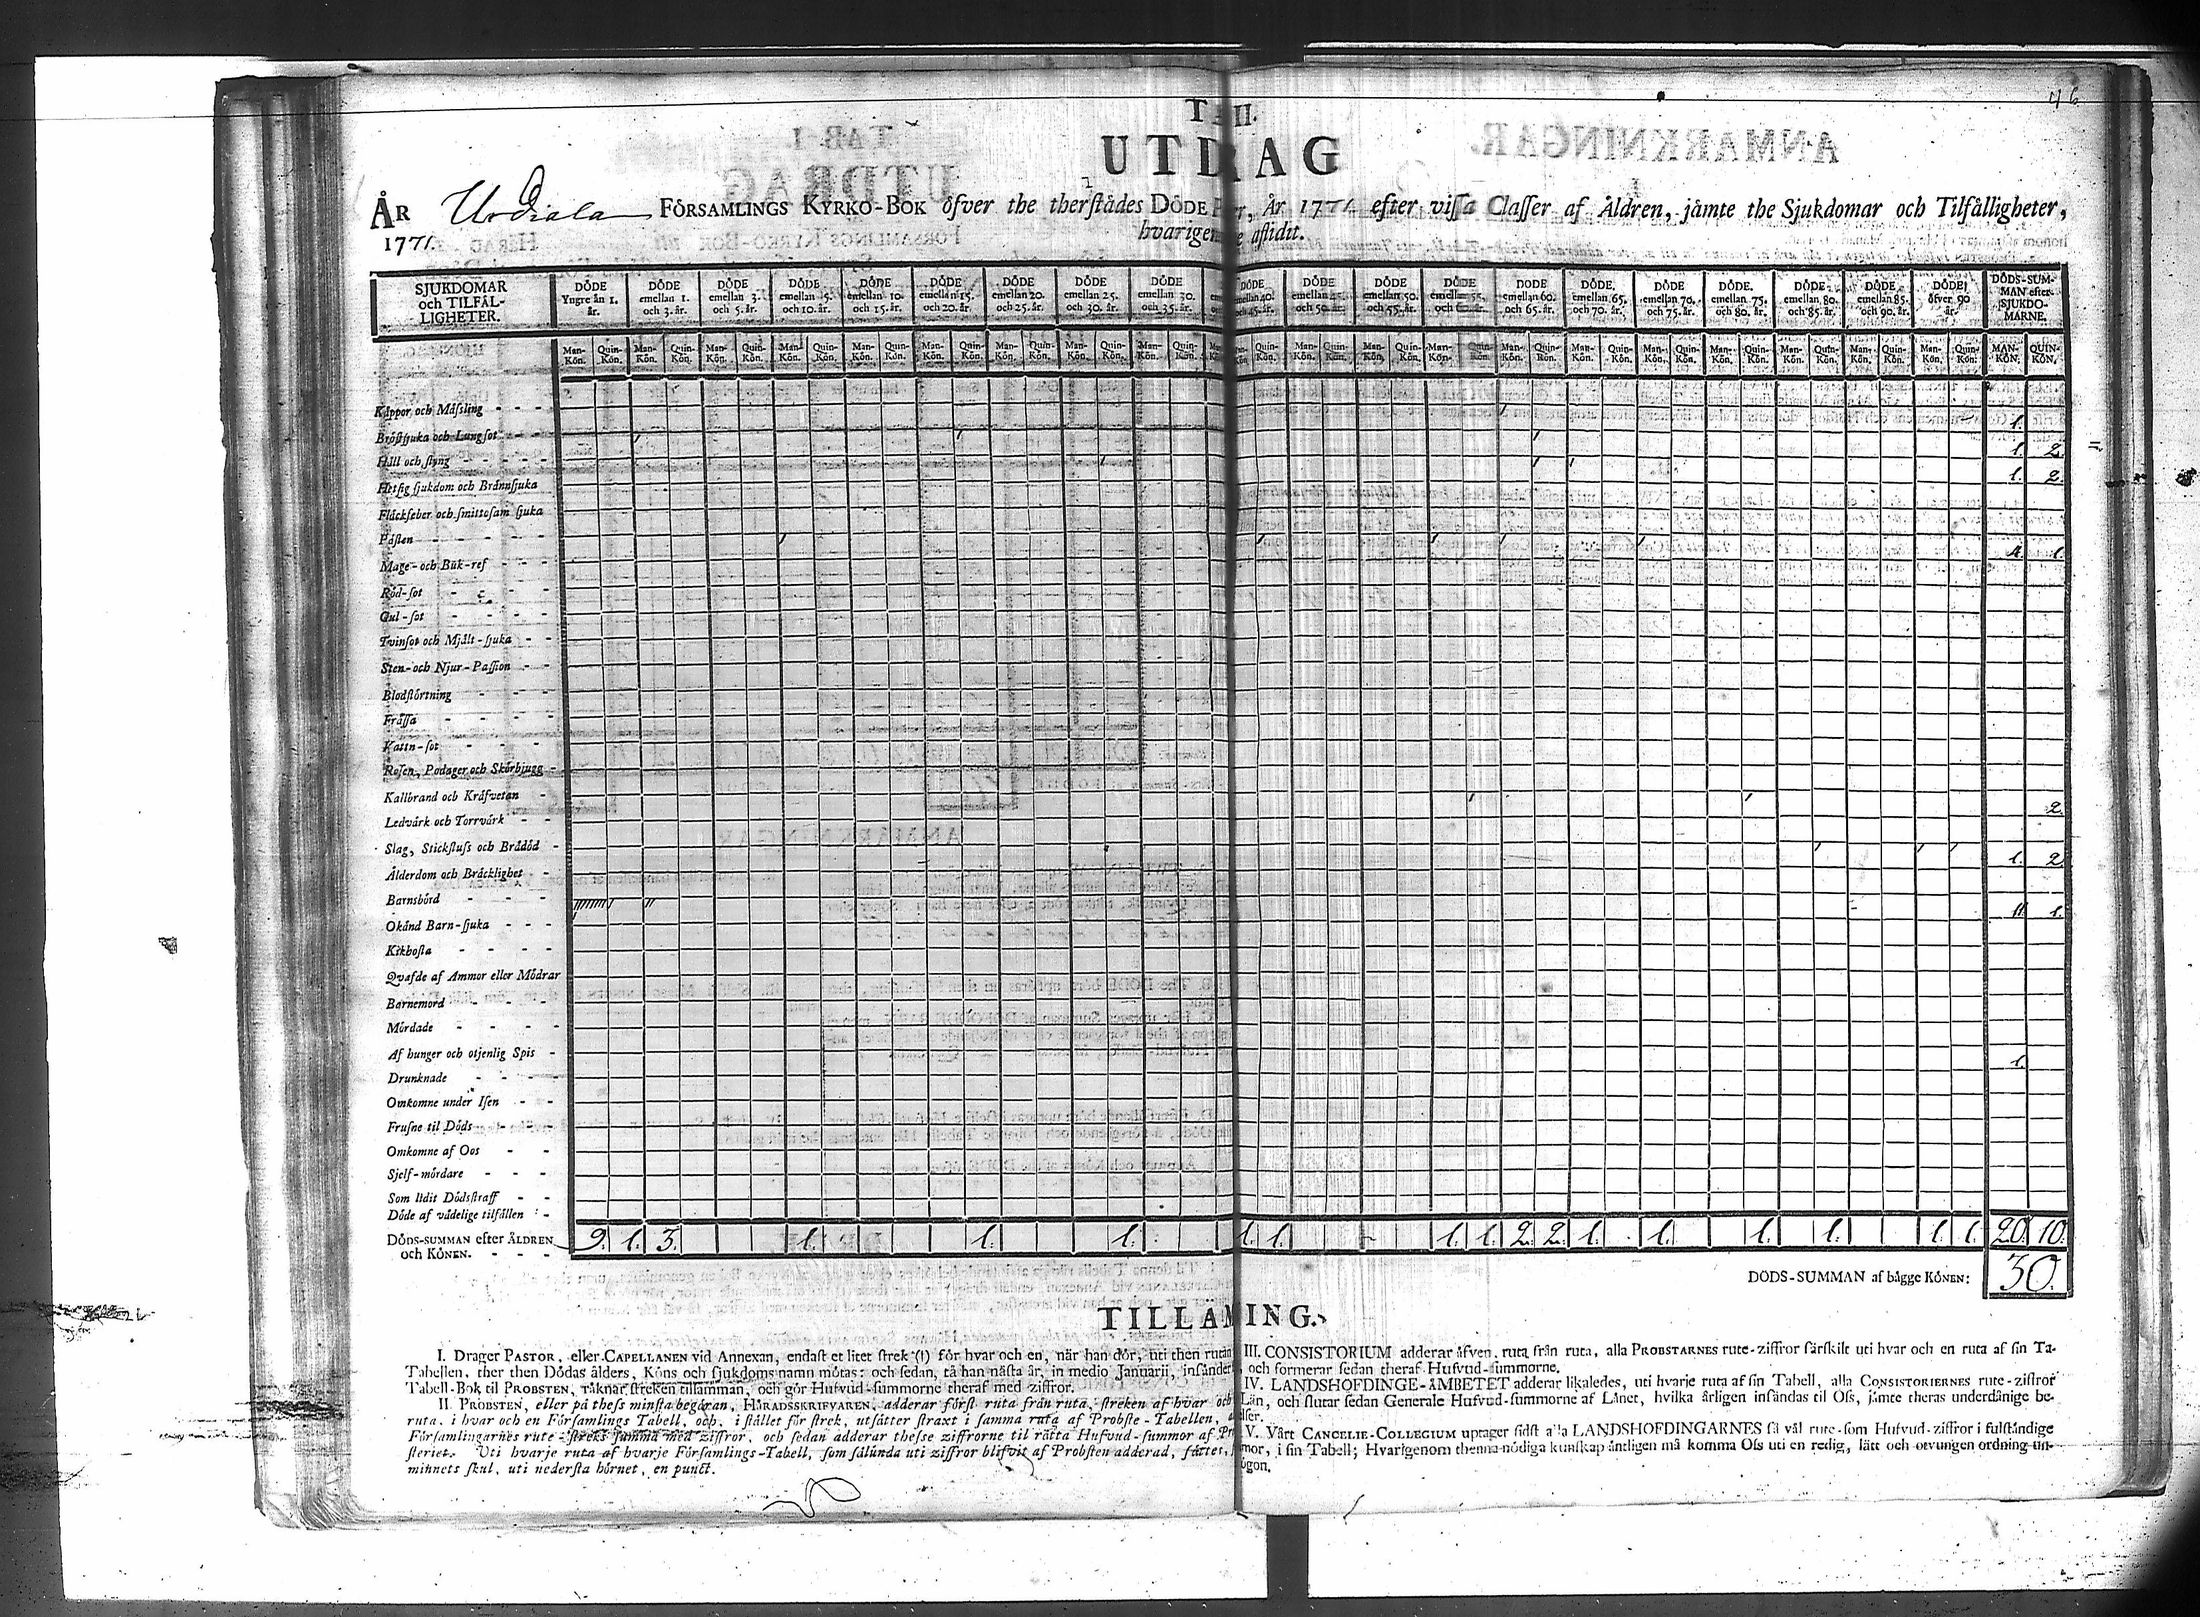 46
TAB. II.
UTDRAG
ÅR Urdiala FÖRSAMLINGS KYRKO-BOK öfver the therstädes DÖDE År 1771 efter vissa Classer af Åldren, jämte the Sjukdomar och Tilfälligheter,
1771. hvarigenom aflidit.
SJUKDOMAR och TILFÄLLIGHETER. DÖDE Yngre än 1. år. DÖDE emellan 1. och 3. år. DÖDE emellan 3. och 5. år. DÖDE emellan 5. och 10. år. DÖDE emellan 10. och 15. år. DÖDE emellan 15. och 20. år. DÖDE emellan 20. och 25. år. DÖDE emellan 25. och 30. år. DÖDE emellan 30. och 35. år. DÖDE emellan 40. och 45. år. DÖDE emellan 45. och 50. år. DÖDE emellan 50. och 55. år. DÖDE emellan 55. och 60. år. DÖDE emellan 60. och 65. år. DÖDE. emellan 65. och 70. år. DÖDE emellan 70. och 75. år. DÖDE. emellan 75. och 80. år. DÖDE emellan 80. och 85. år. DÖDE emellan 85. och 90. år. DÖDE öfver 90 år. DÖDS-SUMMAN efter SJUKDOMARNE.
Man-Kön. Quin-Kön. Man-Kön. Quin-Kön. Man-Kön. Quin-Kön. Man-Kön. Quin-Kön. Man-Kön. Quin-Kön. Man-Kön. Quin-Kön. Man-Kön. Quin-Kön. Man-Kön. Quin-Kön. Man-Kön. Quin-Kön. Quin-Kön. Man-Kön. Quin-Kön. Man-Kön. Quin-Kön. Man-Kön. Quin-Kön. Man-Kön. Quin-Kön. Man-Kön. Quin-Kön. Man-Kön. Quin-Kön. Man-Kön. Quin-Kön. Man-Kön. Quin-Kön. Man-Kön. Quin-Kön. Man-Kön. Quin-Kön. MAN-KÖN. QUIN-KÖN.
Kåppor och Mässling
Bröstsjuka och Lungsot 1.
Håll och styng 1. 2.
Hetsig sjukdom och Brännsjuka 1. 2.
Fläckfeber och smittosam sjuka
Påsten
Mage- och Buk-ref 4. 1.
Röd-sot
Gul-sot
Tvinsot och Mjält-sjuka
Sten- och Njur-Passion
Blodstörtning
Frässa
Kattn-sot
Rosen, Podager och Skörbjugg
Kallbrand och Kräfvetan
Ledvärk och Torrvärk 2.
Slag, Stickfluss och Brådöd
Ålderdom och Bräcklighet 1. 2.
Barnsbörd
Okänd Barn-sjuka 11 1.
Kikhosta
Qvafde af Ammor eller Mödrar
Barnemord
Mördade
Af hunger och otjenlig Spis
Drunknade 1.
Omkomne under Isen
Frusne til Döds
Omkomne af Oos
Sjelf-mördare
Som lidit Dödsstraff
Döde af vådelige tilfällen
DÖDS-SUMMAN efter ÅLDREN och KÖNEN. 9. 1. 3. 1. 1. 1. 1. 1. 1. 1. 2. 2. 1. 1. 1. 1. 1. 1. 20. 10.
DÖDS-SUMMAN af bägge KÖNEN: 30.
TILLÄMNING.
I. Drager PASTOR, eller CAPELLANEN vid Annexan, endast et litet strek (1) för hvar och en, när han dör, uti then rutan
Tabellen, ther then Dödas ålders, Köns och sjukdoms namn mötas: och sedan, tå han nästa år, in medio Januarii, insänder
Tabell-Bok til PROBSTEN, räknar streken tillamman, och gör Hufvud-summorne theraf med ziffror.
II. PROBSTEN, eller på thess minsta begäran, HÄRADSSKRIFVAREN, adderar först ruta från ruta, streken af hvar och
ruta, i hvar och en Församlings Tabell, och, i stället för strek, utsätter straxt i samma ruta af Probste-Tabellen,
Församlingarnes rute-streks summa med ziffror, och sedan adderar thesse ziffrorne til rätta Hufvud-summor af
steriet. Uti hvarje ruta af hvarje Församlings-Tabell, som sålunda uti ziffror blifvit af Probsten adderad, sättes,
minnets skul, uti nedersta hörnet, en punct.
III. CONSISTORIUM adderar äfven, ruta från ruta, alla PROBSTARNES rute-ziffror särskilt uti hvar och en ruta af sin Ta-
och formerar sedan theraf Hufvud-summorne.
IV. LANDSHÖFDINGE-ÄMBETET adderar likaledes, uti hvarje ruta af sin Tabell, alla CONSISTORIERNES rute-ziffror
Län, och slutar sedan Generale Hufvud-summorne af Länet, hvilka årligen insändas til Oss, jämte theras underdånige be-
elser.
V. Vårt CANCELIE-COLLEGIUM uptager sidst alla LANDSHÖFDINGARNES så väl rute-som Hufvud-ziffror i fulständige
mor, i sin Tabell; Hvarigenom thenna nödiga kunskap äntligen må komma Oss uti en redig, lätt och otvungen ordning un-
ögon.